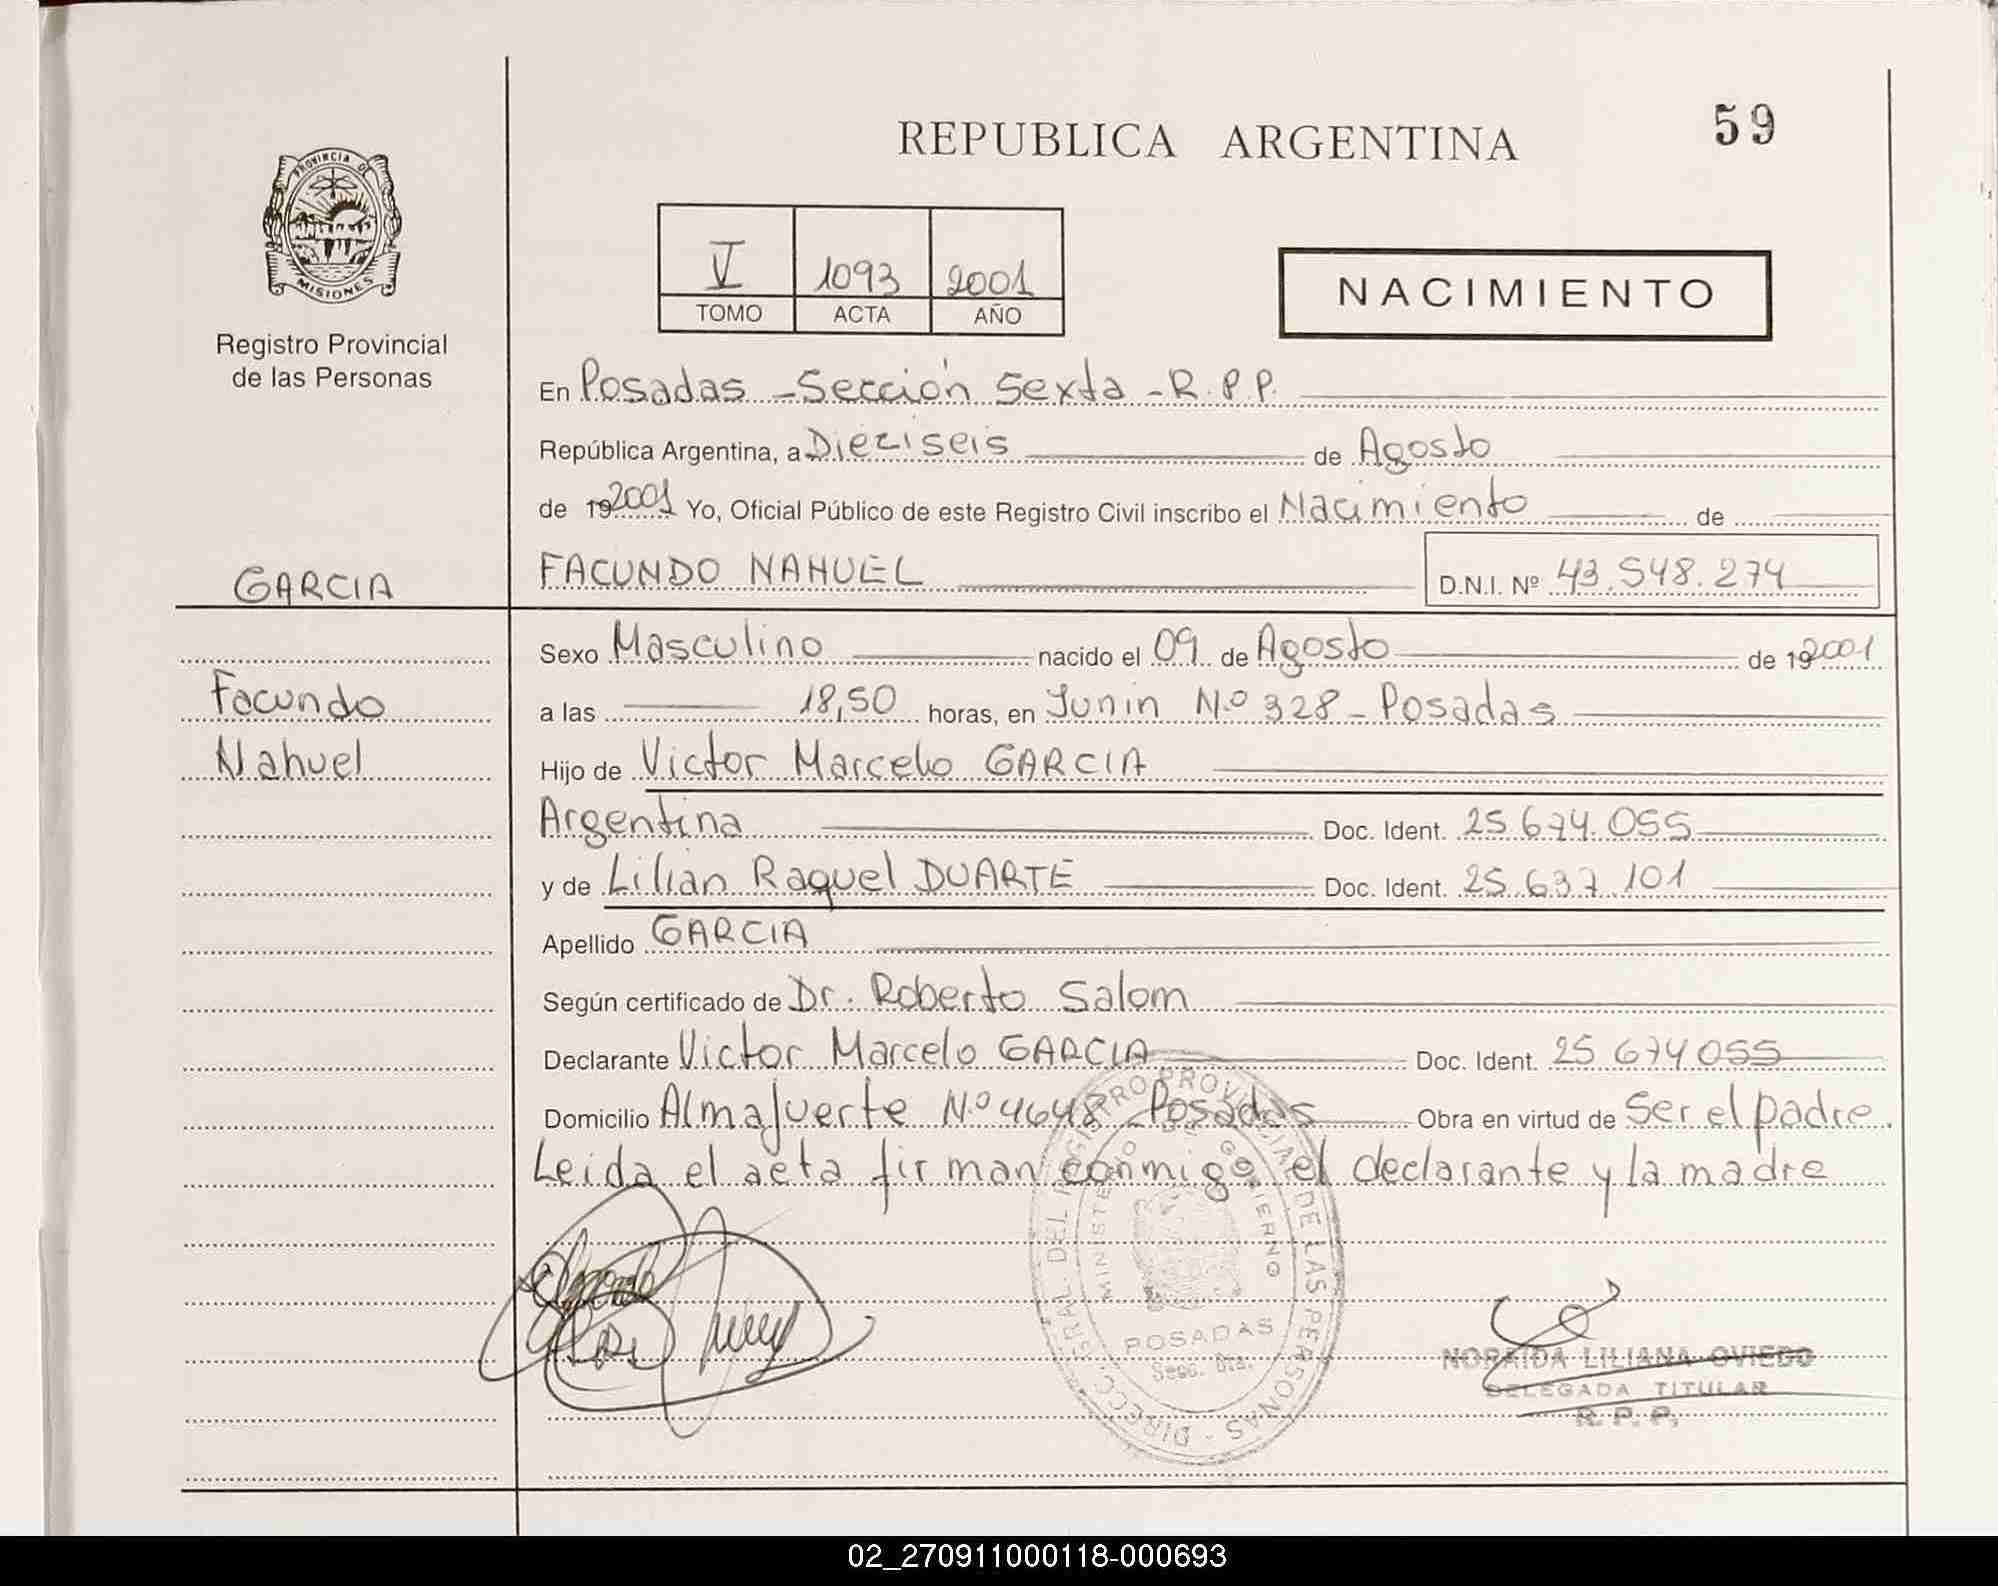 REPUBLICA ARGENTINA
59
PROVINCIA DE
MISIONES
Registro Provincial
de las Personas
V 1093 2001
TOMO ACTA AÑO
NACIMIENTO
En Posadas - Sección Sexta - R.P.P.
República Argentina, a Dieziseis de Agosto
de 192001 Yo, Oficial Público de este Registro Civil inscribo el Nacimiento de
GARCIA
FACUNDO NAHUEL D.N.I. Nº 43.548.274
Facundo
Nahuel
Sexo Masculino nacido el 09 de Agosto de 192001
a las 18,50 horas, en Junin Nº 328 - Posadas
Hijo de Victor Marcelo GARCIA
Argentina Doc. Ident. 25.674.055
y de Lilian Raquel DUARTE Doc. Ident. 25.637.101
Apellido GARCIA
Según certificado de Dr. Roberto Salom
Declarante Victor Marcelo GARCIA Doc. Ident. 25 674 055
Domicilio Almafuerte Nº 4648 - Posadas Obra en virtud de Ser el padre.
Leida el acta firman conmigo el declarante y la madre
DIRECC. GRAL. DEL REGISTRO PROVINCIAL DE LAS PERSONAS
MINISTERIO GOBIERNO
POSADAS
Secc. 6ta.
NORAIDA LILIANA OVIEDO
DELEGADA TITULAR
R.P.P.
02_270911000118-000693